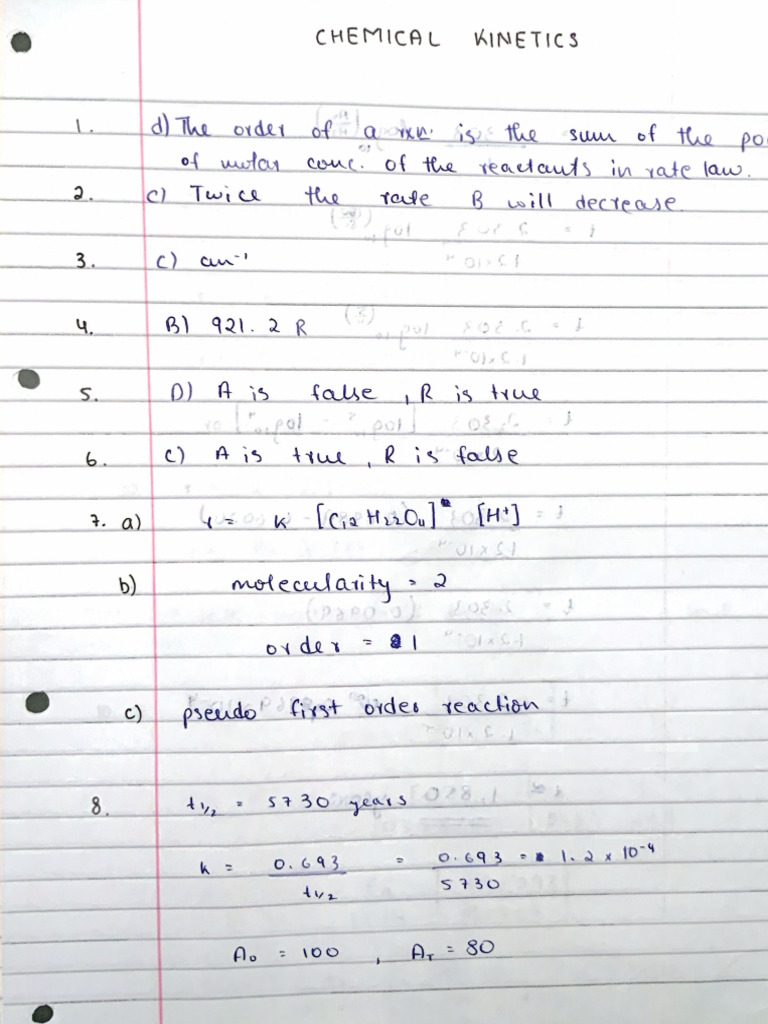 CHEMICAL KINETICS
1. d) The order of a rxn. is the sum of the po
of molar conc. of the reactants in rate law.
2. c) Twice the rate B will decrease.
3. C) an⁻¹
4. B) 921.2 R
5. D) A is false, R is true
6. C) A is true, R is false
7. a) r = k [C12 H22O11] [H⁺]
b) molecularity = 2
order = 1
c) pseudo first order reaction
8. t1/2 = 5730 years
k = 0.693 / t1/2 = 0.693 / 5730 = 1.2 x 10⁻⁴
A₀ = 100, A_T = 80